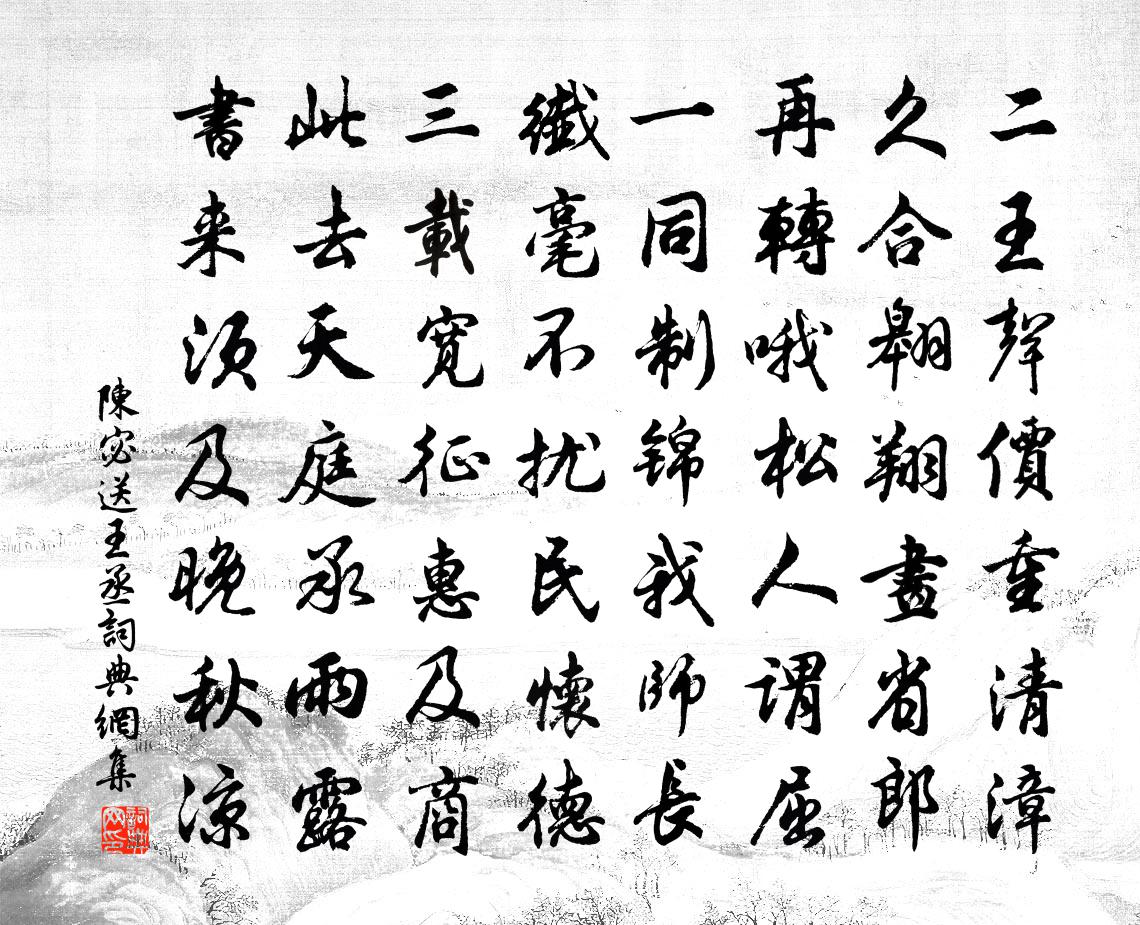 二王聲價重清漳
久合翱翔畫省郎
再轉哦松人謂屈
一同制锦我師長
纖毫不扰民懷德
三載寬征惠及商
此去天庭承雨露
書来須及晚秋涼
陳宓送王丞詞典網集
詞典网印